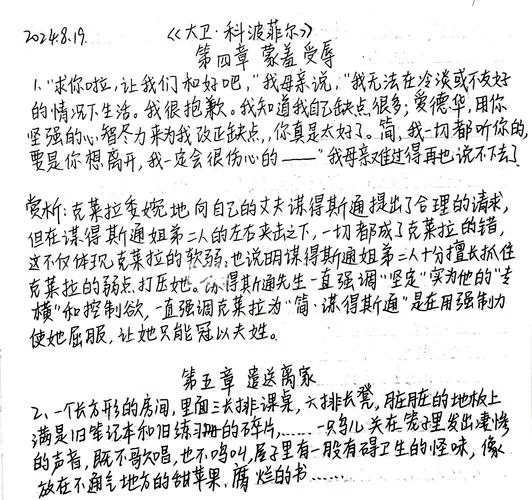 2024.8.19.
《大卫·科波菲尔》
第四章 蒙羞受辱
1、"求你啦,让我们和好吧,"我母亲说,"我无法在冷淡或不友好
的情况下生活。我很抱歉。我知道我自己缺点很多;爱德华,用你
坚强的心智尽力来为我改正缺点,你真是太好了。简,我一切都听你的,
要是你想离开,我一定会很伤心的——"我母亲难过得再也说不下去了
赏析:克莱拉委婉地向自己的丈夫谋得斯通提出了合理的请求,
但在谋得斯通姐弟二人的左右夹击之下,一切都成了克莱拉的错,
这不仅体现克莱拉的软弱,也说明谋得斯通姐弟二人十分擅长抓住
克莱拉的弱点打压她。谋得斯通先生一直强调"坚定"实为他的"专
横"和控制欲,一直强调克莱拉为"简·谋得斯通"是在用强制力
使她屈服,让她只能冠以夫姓。
第五章 遣送离家
2、一个长方形的房间,里面三长排课桌,六排长凳,脏脏的地板上
满是旧笔记本和旧练习册的碎片,……一只鸟儿关在笼子里发出凄惨
的声音,既不歌唱,也不鸣叫,屋子里有一股有碍卫生的怪味,像
放在不通气地方的甜苹果、腐烂的书……